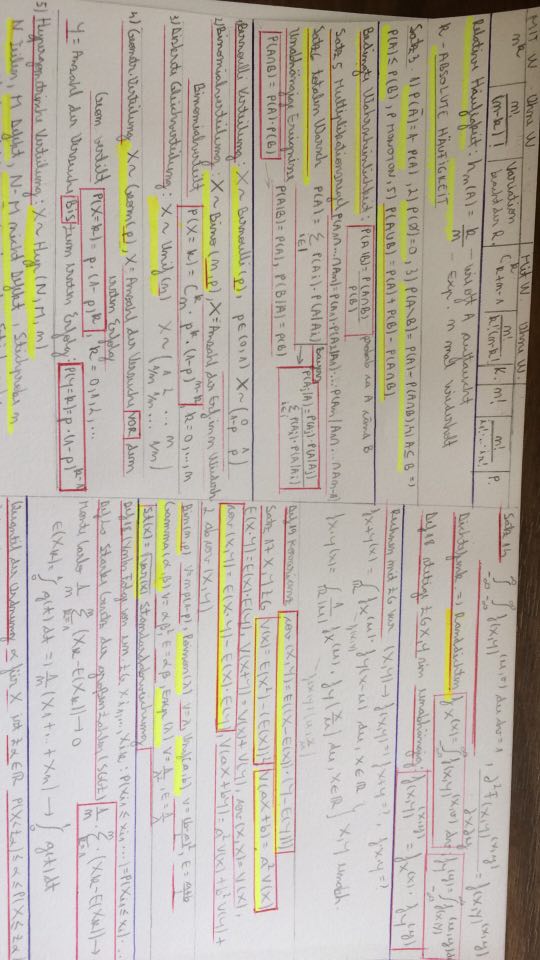 MIT W. Ohne W. Mit W. Ohne W.
n^k | n!/(n-k)! | Variation beacht der R. | C^k_{k+n-1} | n!/k!(n-k)! | K. | n! | n!/i_1!...i_n! | P.
Relative Häufigkeit: h_n(A) = k/n - wie oft A auftaucht
- Exp. n mal wiederholt
k - ABSOLUTE HÄUFIGKEIT
Satz 3. 1) P(Ā)=1-P(A), 2) P(∅)=0, 3) P(A\B)=P(A)-P(A∩B), 4) A⊆B =>
P(A)≤P(B), P MONOTON, 5) P(A∪B)=P(A)+P(B)-P(A∩B)
Bedingte Wahrscheinlichkeit: P(A|B)=P(A∩B)/P(B)
Satz 5 Multiplikationsregel
Satz 6 totalen Warsch P(A)=Σ_{i∈I} P(Ai)·P(A|Ai) Bayern P(Aj|A)=P(Aj)·P(A|Aj)/Σ_{i∈I} P(Ai)·P(A|Ai)
Unabhängige Ereignisse
P(A∩B)=P(A)·P(B) P(A|B)=P(A), P(B|A)=P(B)
1) Bernoulli Verteilung: X~Bernoulli(p), p∈(0,1) X~(0 1 / 1-p p)
2) Binomialverteilung: X~Bino(n,p), X=Anzahl der Erf in n Wiederh
Binomialverteilt P(X=k)=C^k_n·p^k·(1-p)^{n-k}, k=0,...,n
3) Diskrete Gleichverteilung: X~Unif(n) X~(1 2 ... n / 1/n 1/n ... 1/n)
4) Geometr. Verteilung X~Geom(p), X=Anzahl der Versuche VOR dem
ersten Erfolg
Geom verteilt P(X=k)=p·(1-p)^k, k=0,1,2,...
Y=Anzahl der Versuche BIS zum ersten Erfolg: P(Y=k)=p·(1-p)^{k-1}
5) Hypergeometrische Verteilung: X~Hyp(N,M,n)
N Teilen, M Defekt, N-M nicht Defekt, Stichprobe n
Satz 14 ∫_{-∞}^{∞} ∫_{-∞}^{∞} f_{(X,Y)}(u,v) du dv=1, ∂²F_{(X,Y)}(x,y)/∂x∂y = f_{(X,Y)}(x,y)
Dichtefunk. => Randdichten f_X(x)=∫_{-∞}^{∞} f_{(X,Y)}(x,v) dv f_Y(y)=∫_{-∞}^{∞} f_{(X,Y)}(u,y) du
Def 18 stetige ZG X, Y sin unabhängig: f_{(X,Y)}(x,y)=f_X(x)·f_Y(y)
Rechnen mit ZG
f_{X+Y}(x)=∫_ℝ f_X(u)·f_Y(x-u) du, x∈ℝ
f_{X·Y}(x)=∫_ℝ 1/|u| f_X(u)·f_Y(x/u) du, x∈ℝ } X,Y unabh.
Def 19 Kovarianz cov(X,Y)=E((X-E(X))·(Y-E(Y)))
Satz 17 X,Y ZG V(X)=E(X²)-(E(X))² V(aX+b)=a²V(X)
E(X·Y)=E(X)·E(Y), V(X+Y)=V(X)+V(Y), cov(X,X)=V(X),
cov(X,Y)=E(X·Y)-E(X)·E(Y), V(aX+bY)=a²V(X)+b²V(Y)+
2ab cov(X,Y)
Bin(n,p) V=np(1-p), Poisson(λ) V=λ, Unif(a,b) V=(b-a)²/12, E=a+b/2
Gamma(α,β) V=αβ², E=αβ, Exp(λ) V=1/λ², E=1/λ
St(X)=√Var(X) Standardabweichung
Def 20 Starkes Gesetz der großen Zahlen (SGGZ) 1/n Σ_{k=1}^n (Xk-E(Xk))→
Monte Carlo 1/n Σ_{k=1}^n (Xk-E(Xk))→0
E(Xk)=∫_0^1 g(t)dt => 1/n(X1+...+Xn)→∫_0^1 g(t)dt
Quantil der Ordnung α für X ist zα∈ℝ P(X<zα)≤α≤P(X≤zα)